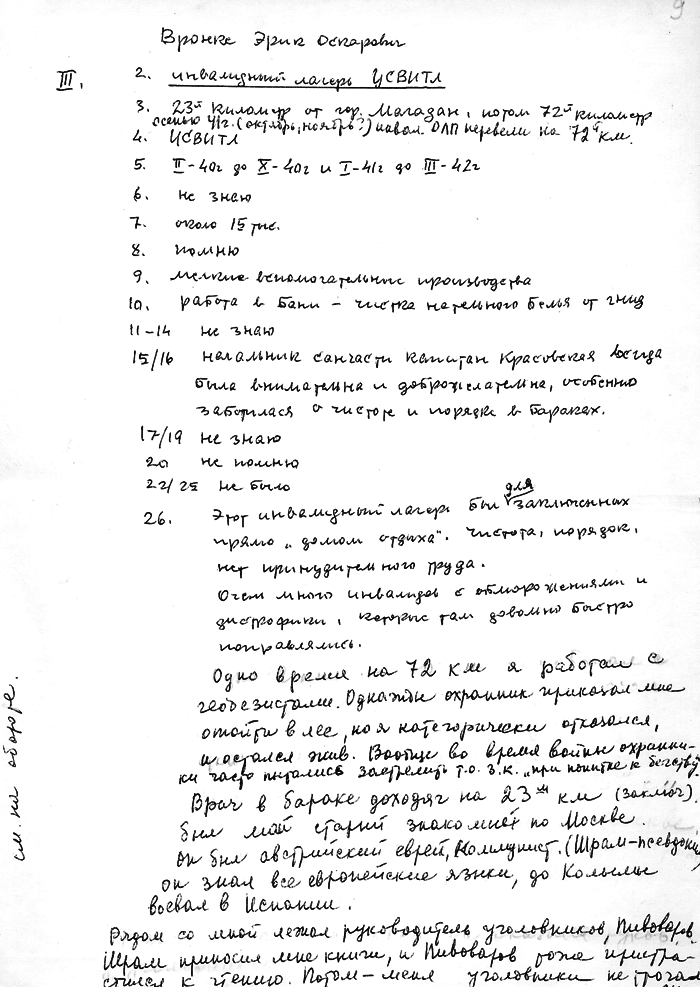 9
Вронке Эрик Оскарович
III.
2. инвалидный лагерь УСВИТЛ
3. 23й километр от гор. Магадан, потом 72й километр
осенью 41г. (октябрь, ноябрь?) ОЛП перевели на 72й км.
4. УСВИТЛ
5. II-40г до X-40г и I-41г до III-42г
6. не знаю
7. около 15 тыс.
8. помню
9. мелкие вспомогательные производства
10. работа в бани – чистка нательного белья от гнид
11-14 не знаю
15/16 начальник санчасти капитан Красовская всегда
была внимательна и доброжелательна, особенно
заботилася о чистоте и порядке в бараках.
17/19 не знаю
20 не помню
22/25 не было
для
26. Этот инвалидный лагерь был заключенных
прямо „домом отдыха“. чистота, порядок,
нет принудительного труда.
Очень много инвалидов с обморожениями и
дистрофики, которые там довольно быстро
поправлялись.
Одно время на 72 км я работал с
геодезистами. Однажды охранник приказал мне
отойти в лес, но я категорически отказался,
и остался жив. Вообще во время войны охранни-
ки часто пытались застрелить т.о. з.к. „при попытке к бегству“
Врач в бараке доходяг на 23ем км (заключ.)
был мой старый знакомый по Москве.
он был австрийский еврей, коммунист. (Шрам-псевдоним)
он знал все европейские языки, до Колымы
воевал в Испании.
Рядом со мной лежал руководитель уголовников, Пивоваров
Шрам приносил мне книги, и Пивоваров тоже пристра-
стился к чтению. Потом – меня уголовники не трогали
см. на обороте.